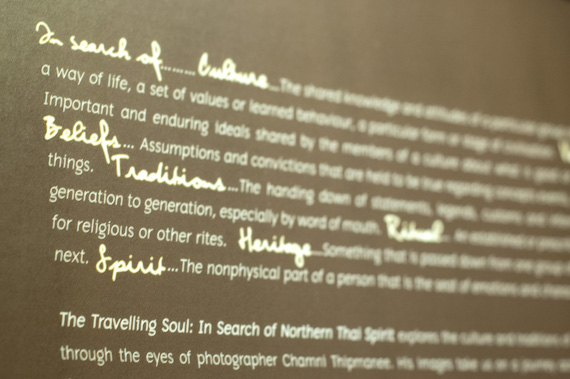 In search of........ Culture...The shared knowledge and attitudes of
a way of life, a set of values or learned behaviour, a particular form or stage of
Important and enduring ideals shared by the members of a culture about what is good
Beliefs... Assumptions and convictions that are held to be true regarding
things. Traditions...The handing down of statements, legends, customs and
generation to generation, especially by word of mouth. Ritual... An established
for religious or other rites. Heritage...Something that is passed down from one
next. Spirit...The nonphysical part of a person that is the seat of emotions and
The Travelling Soul: In Search of Northern Thai Spirit explores the culture and traditions
through the eyes of photographer Chamni Thipmanee. His images take us on a journey